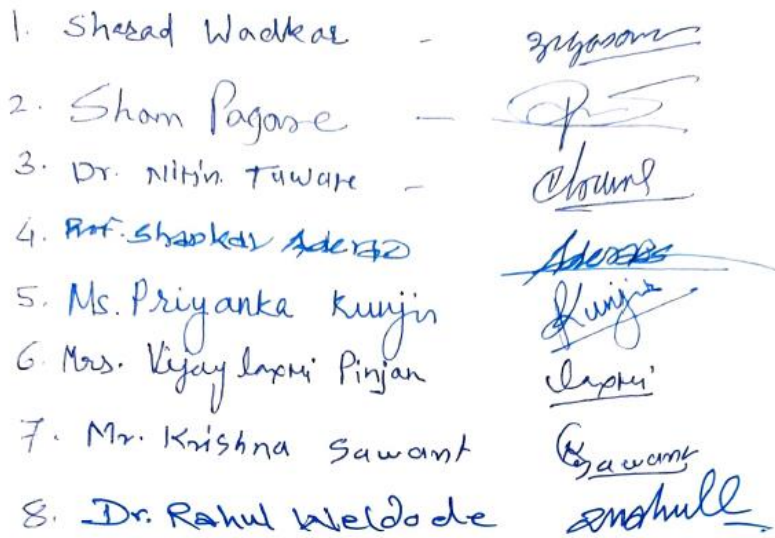 1. Sharad Wadkar -
2. Sham Pagare -
3. Dr. Nitin Taware -
4. Prof. Shankar Aderao
5. Ms. Priyanka Kunjir Kunjir
6. Mrs. Vijaylaxmi Pinjan laxmi
7. Mr. Krishna Sawant Sawant
8. Dr. Rahul Weldode